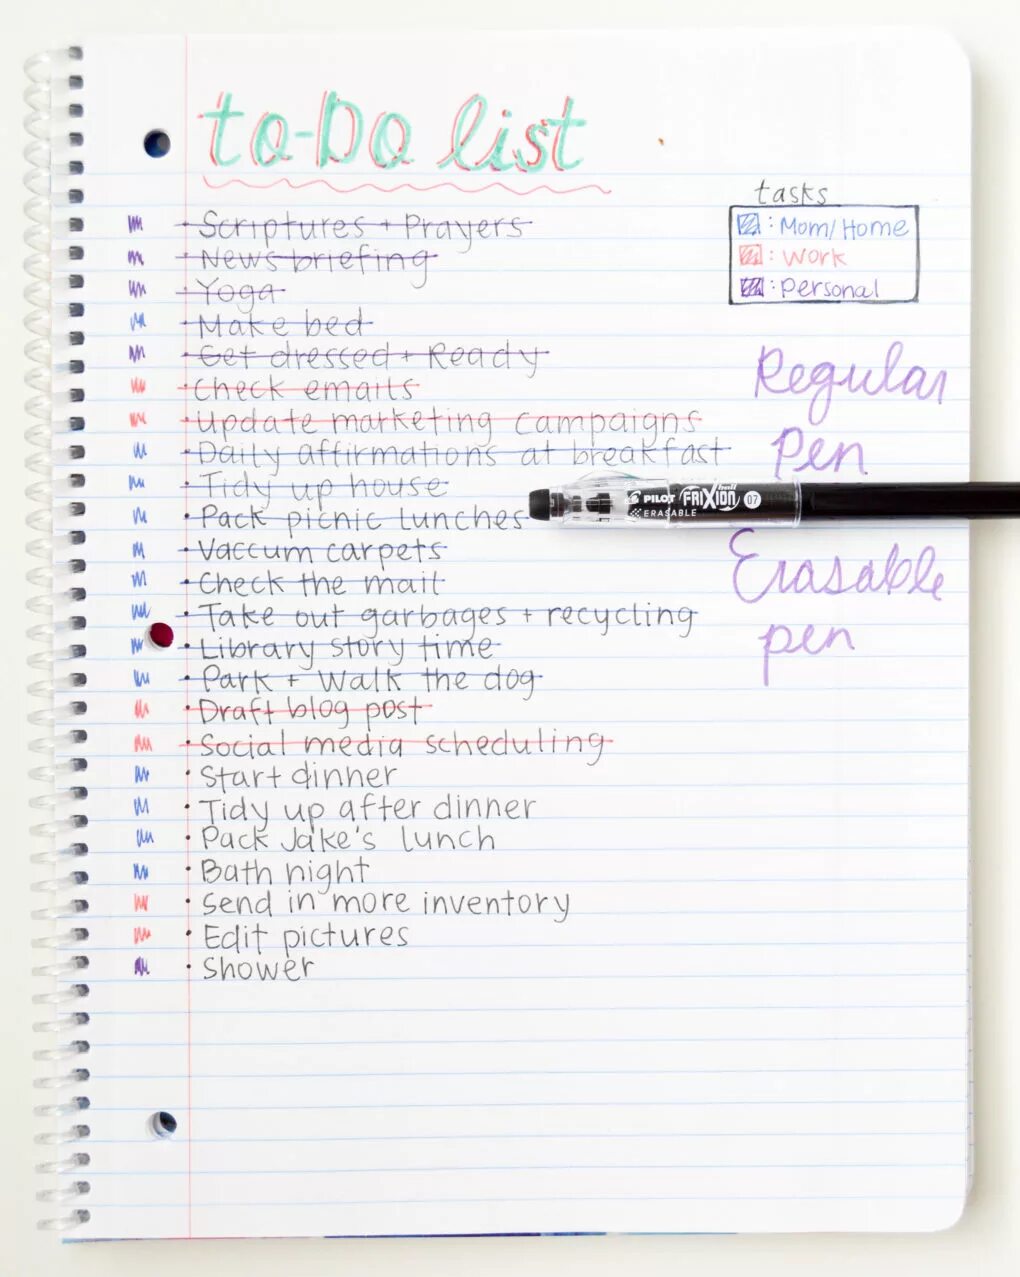 to-Do list
tasks
: Mom/Home
: Work
: Personal
· Scriptures + Prayers
· News briefing
· Yoga
· Make bed
· Get dressed + Ready
· Check emails
· Update marketing campaigns
· Daily affirmations at breakfast
· Tidy up house
· Pack picnic lunches
· Vaccum carpets
· Check the mail
· Take out garbages + recycling
· Library story time
· Park + Walk the dog
· Draft blog post
· Social media scheduling
· Start dinner
· Tidy up after dinner
· Pack Jake's lunch
· Bath night
· Send in more inventory
· Edit pictures
· Shower
Regular
Pen
PILOT FRIXION ball 07
ERASABLE
Erasable
pen